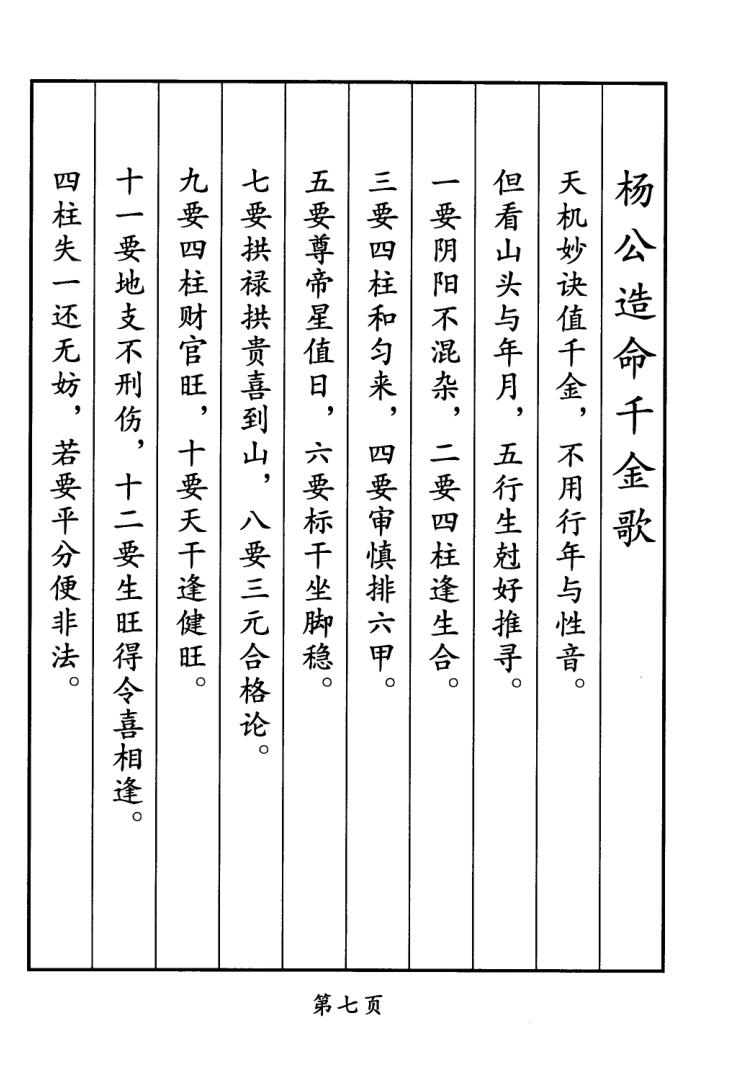 杨公造命千金歌
天机妙诀值千金，不用行年与性音。
但看山头与年月，五行生尅好推寻。
一要阴阳不混杂，二要四柱逢生合。
三要四柱和匀来，四要审慎排六甲。
五要尊帝星值日，六要标干坐脚稳。
七要拱禄拱贵喜到山，八要三元合格论。
九要四柱财官旺，十要天干逢健旺。
十一要地支不刑伤，十二要生旺得令喜相逢。
四柱失一还无妨，若要平分便非法。
第七页